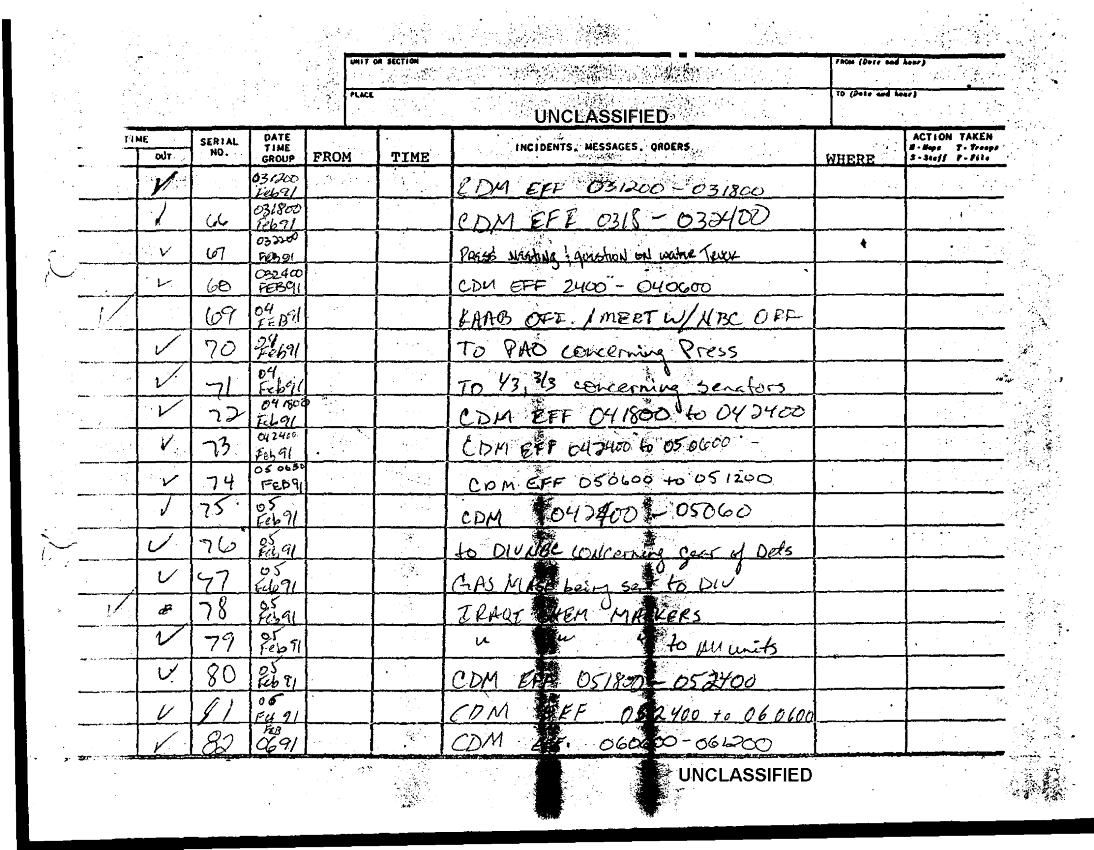 UNIT OR SECTION
FROM (Date and hour)
PLACE
TO (Date and hour)
UNCLASSIFIED
TIME
OUT
SERIAL NO.
DATE TIME GROUP
FROM
TIME
INCIDENTS, MESSAGES, ORDERS
WHERE
ACTION TAKEN
M-Maps T-Troops
S-Staff F-File
031200 Feb91 CDM EFF 031200-031800
66 031800 Feb91 CDM EFF 0318-032400
67 032200 FEB91 PRESS MEETING question on water Truck
68 032400 FEB91 CDM EFF 2400-040600
69 04 FEB91 OFF. MEET W/NBC OFF
70 04 Feb91 To PAO concerning Press
71 04 Feb91 To 1/3, 3/3 concerning senators
72 041800 Feb91 CDM EFF 041800 to 042400
73 042400 Feb91 CDM EFF 042400 to 050600 -
74 FEB91 CDM EFF 050600 to 051200
75 05 Feb91 CDM 042400-05060
76 05 Feb91 to DIV NBC concerning gear of Dets
77 05 Feb91 GAS MASK being sent to DIV
78 05 Feb91 IRAQI CHEM MARKERS
79 05 Feb91 " " " to All units
80 05 Feb91 CDM EFF 051800-052400
81 06 Feb91 CDM EFF 052400 to 060600
82 FEB 0691 CDM EFF. 060600-061200
UNCLASSIFIED